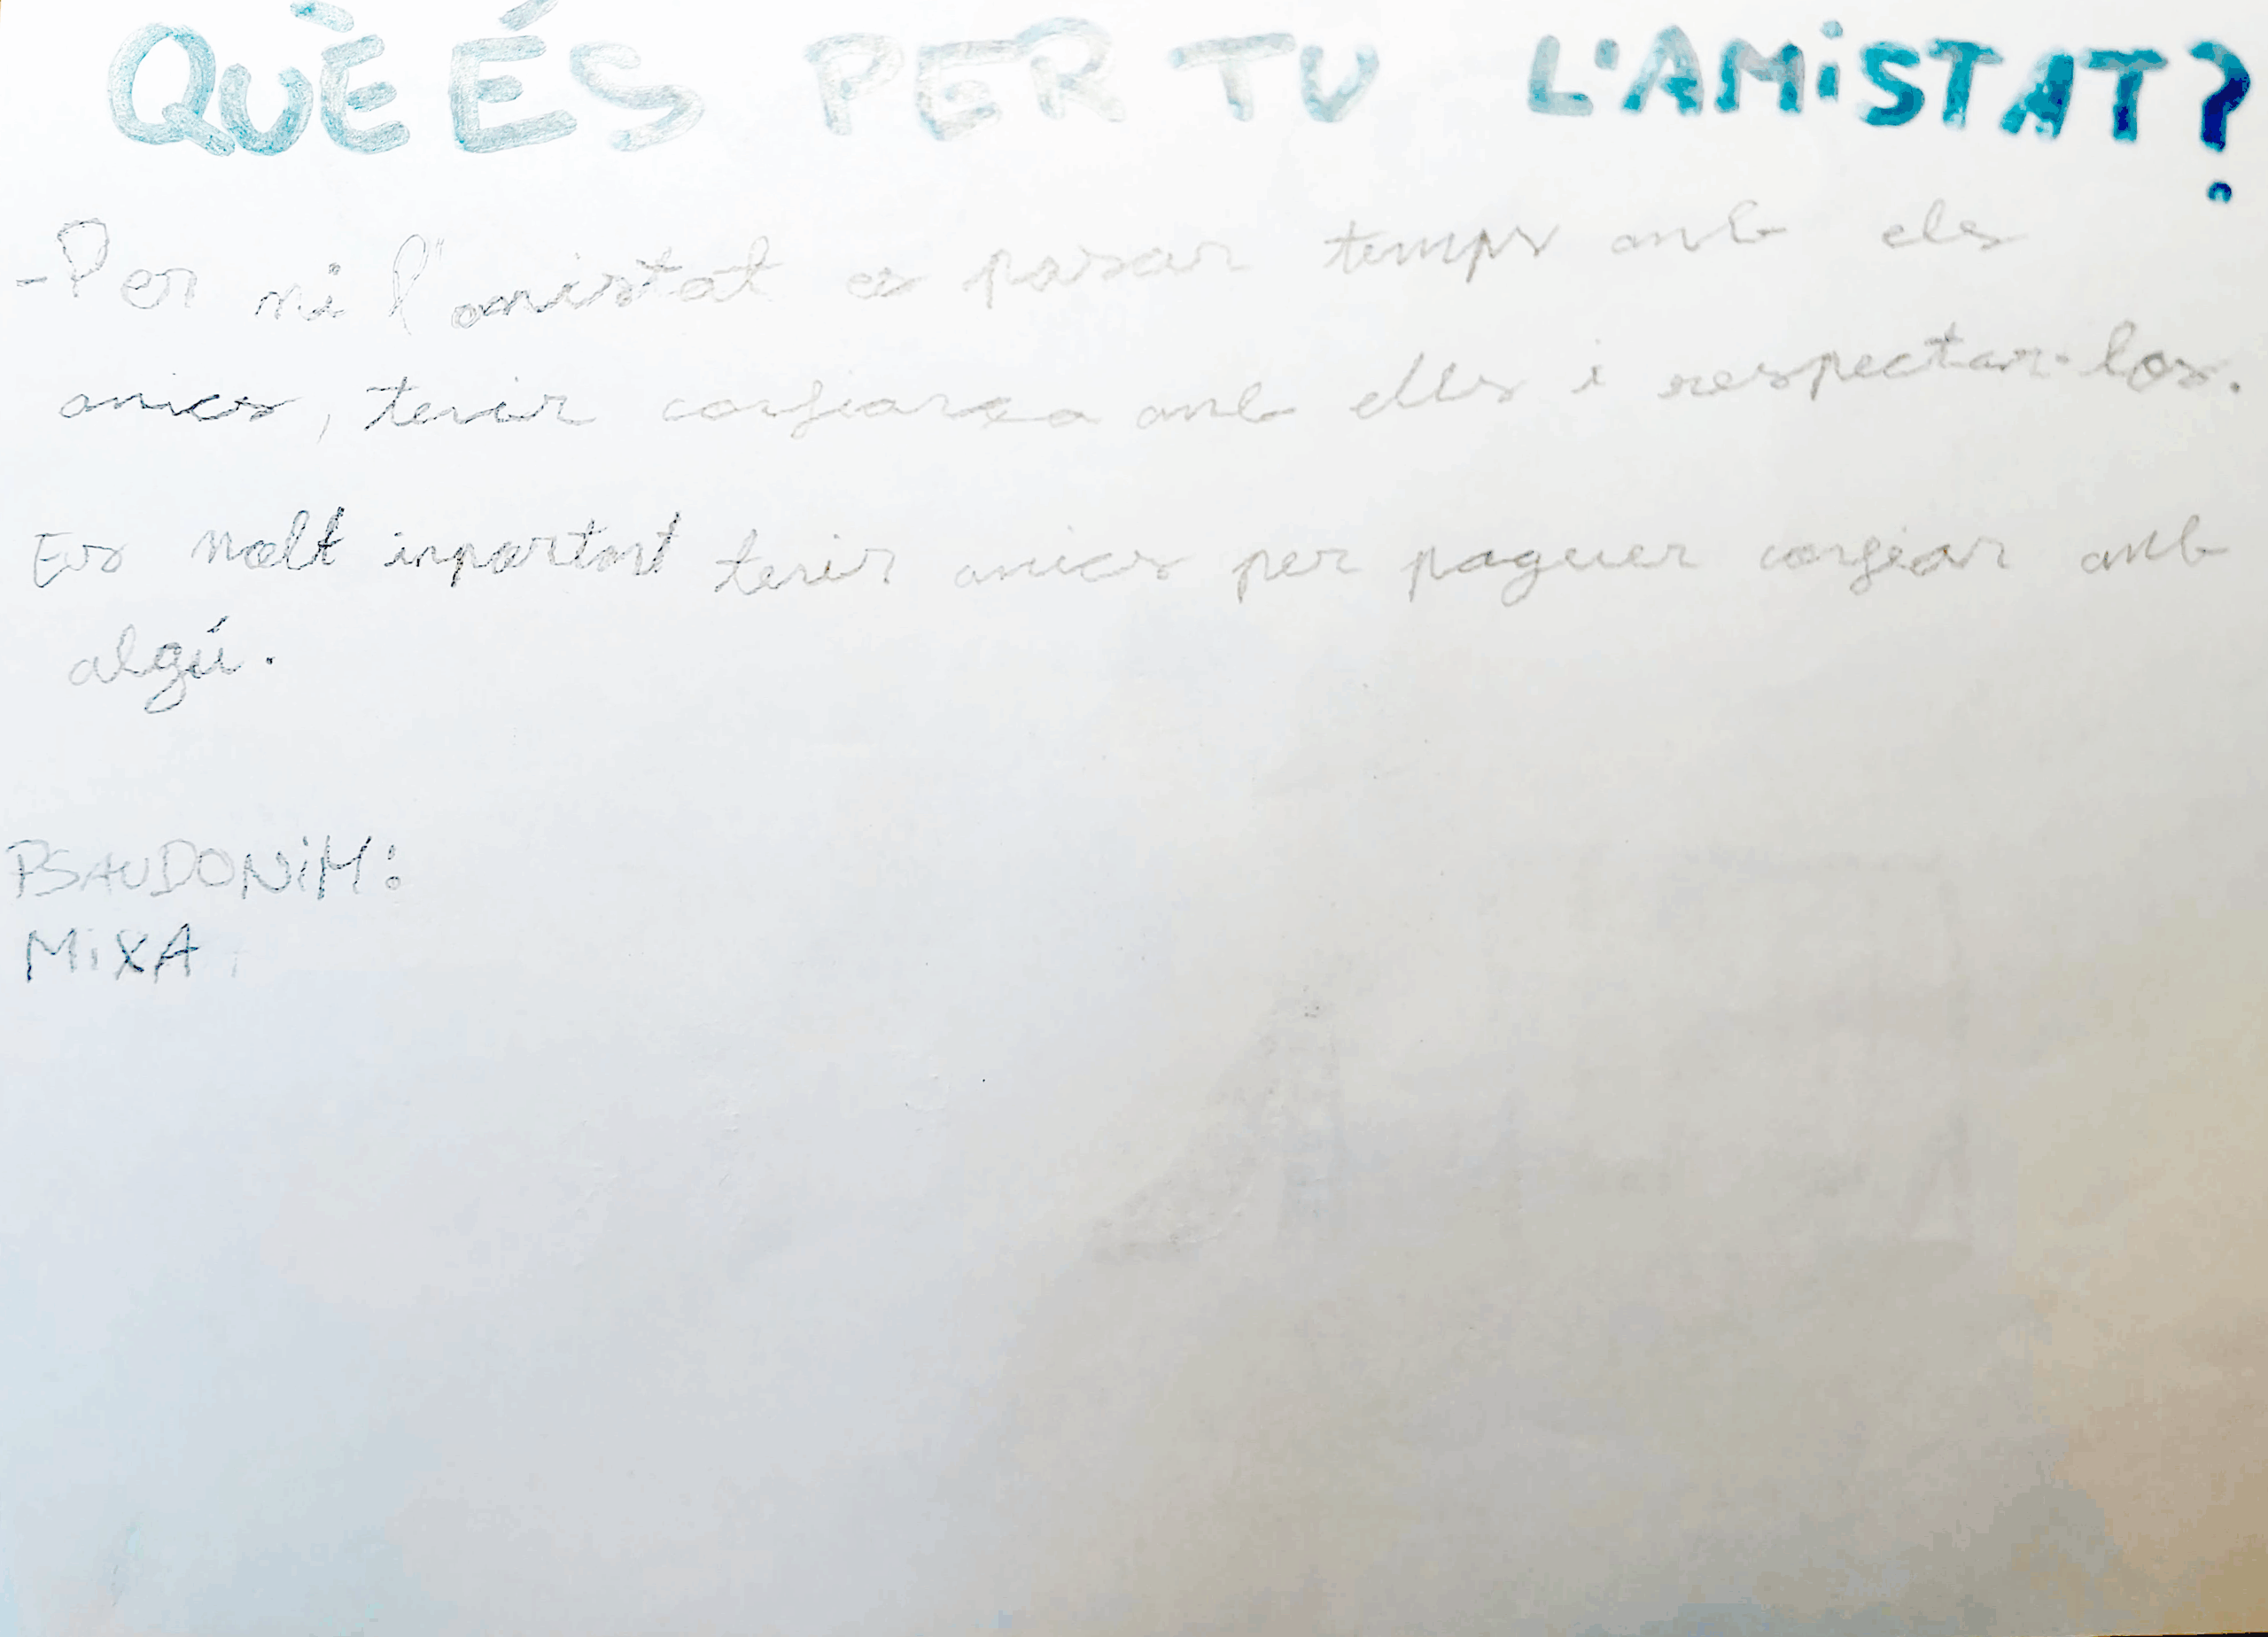 QUÈ ÉS PER TU L'AMiSTAT?
-Per mi l'amistat es pasar temps amb els
amics, tenir confiança amb ells i respectar-los.
Es molt inportant tenir amics per paguer confiar amb
algú.
PSAUDONiM:
MiXA